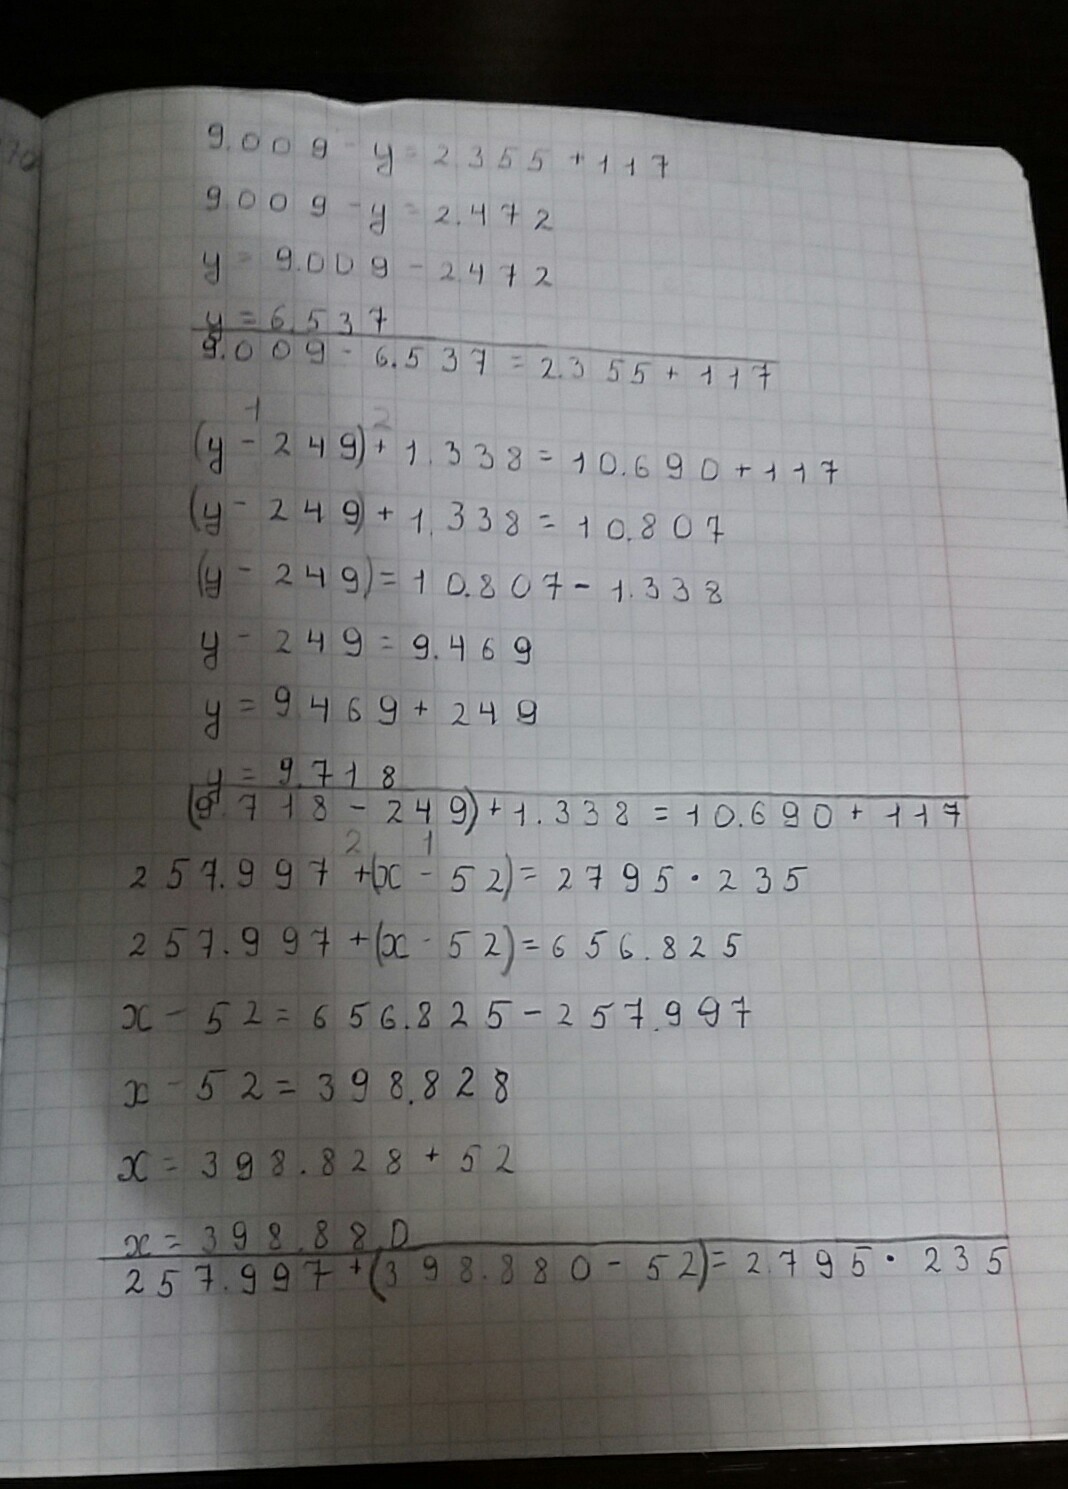 9.009 - y = 2.355 + 117
9.009 - y = 2.472
y = 9.009 - 2.472
y = 6.537
9.009 - 6.537 = 2.355 + 117
1 2
(y - 249) + 1.338 = 10.690 + 117
(y - 249) + 1.338 = 10.807
(y - 249) = 10.807 - 1.338
y - 249 = 9.469
y = 9.469 + 249
y = 9.718
(9.718 - 249) + 1.338 = 10.690 + 117
2 1
257.997 + (x - 52) = 2795 · 235
257.997 + (x - 52) = 656.825
x - 52 = 656.825 - 257.997
x - 52 = 398.828
x = 398.828 + 52
x = 398.880
257.997 + (398.880 - 52) = 2.795 · 235